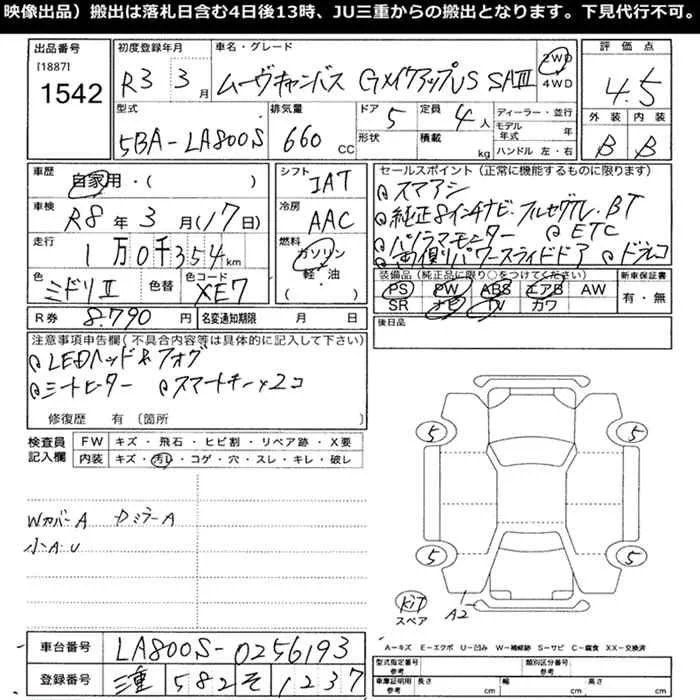 映像出品）搬出は落札日含む4日後13時、JU三重からの搬出となります。下見代行不可。
出品番号 初度登録年月 車名・グレード 評価点
[1887] 1542 R3 3月 ムーヴキャンバス GメイクアップVS SAⅢ 2WD 4WD 4.5
外装 内装
B B
型式 排気量 ドア 定員 ディーラー・並行
5BA-LA800S 660 CC 5 4人 モデル年式 年
形状 積載 kg ハンドル 左・右
車歴 自家用・( ) シフト IAT
車検 R8年3月(17日) 冷房 AAC
走行 1万0千354km 燃料 ガソリン 軽・油 ( )
色 ミドリⅡ 色替 色コード XE7
R券 8.790円 名変通知期限 月 日
セールスポイント（正常に機能するものに限ります）
スマアシ
純正8インチナビ・フルセグTV・BT
パノラマモニター ETC
両側パワースライドドア ドラレコ
装備品（純正品に限り○をつけてください） 新車保証書
PS PW ABS エアB AW 有・無
SR ナビ TV カワ
後日品
注意事項申告欄（不具合内容等は具体的に記入して下さい）
LEDヘッド&フォグ
シートヒーター スマートキー×2コ
修復歴 有〔箇所
検査員記入欄 FW キズ・飛石・ヒビ割・リペア跡・X要
内装 キズ・汚れ・コゲ・穴・スレ・キレ・破レ
Wカバー A ドミラー A
小A.U
5 5
5 5
Kit
スペア
A2
A－キズ E－エクボ U－凹み W－補修跡 S－サビ C－腐食 XX－交換済
車台番号 LA800S-0256193
登録番号 三重 582 そ 1237
型式指定番号 参考 類別区分番号 参考
車庫証明用 参考 長さ cm 幅 cm 高さ cm